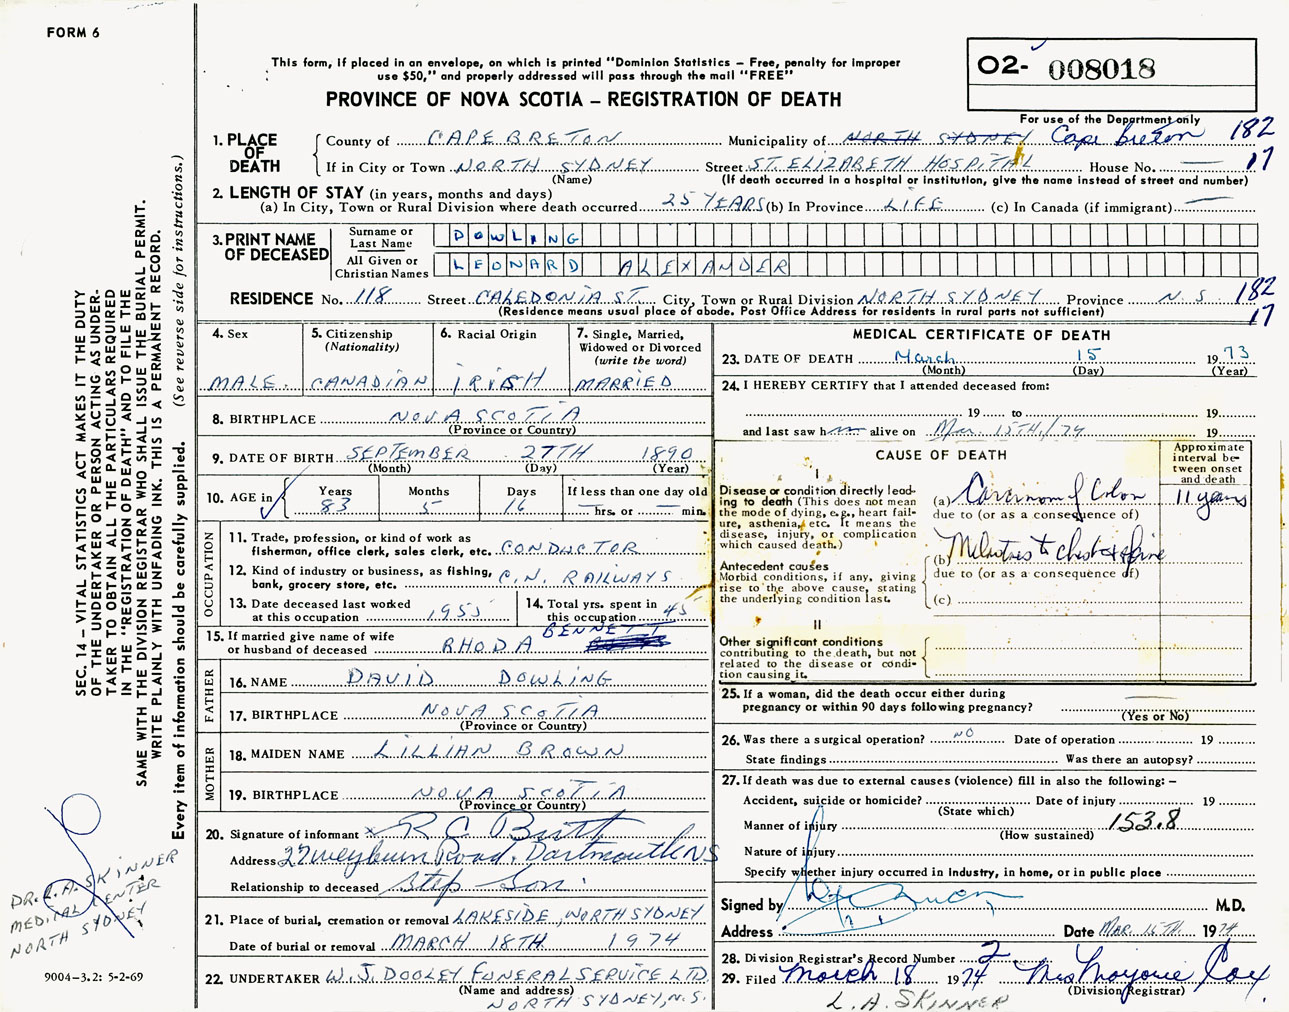 FORM 6
This form, if placed in an envelope, on which is printed "Dominion Statistics – Free, penalty for improper
use $50," and properly addressed will pass through the mail "FREE"
PROVINCE OF NOVA SCOTIA – REGISTRATION OF DEATH
O2- 008018
For use of the Department only
1. PLACE OF DEATH
County of CAPE BRETON Municipality of NORTH SYDNEY Cape Breton 182
If in City or Town NORTH SYDNEY Street ST. ELIZABETH HOSPITAL House No. — 17
(Name) (If death occurred in a hospital or institution, give the name instead of street and number)
2. LENGTH OF STAY (in years, months and days)
(a) In City, Town or Rural Division where death occurred 25 YEARS (b) In Province LIFE (c) In Canada (if immigrant) —
3. PRINT NAME OF DECEASED
Surname or Last Name DOWLING
All Given or Christian Names LEONARD ALEXANDER
RESIDENCE No. 118 Street CALEDONIA ST. City, Town or Rural Division NORTH SYDNEY Province N.S 182
(Residence means usual place of abode. Post Office Address for residents in rural parts not sufficient) 17
4. Sex MALE.
5. Citizenship (Nationality) CANADIAN
6. Racial Origin IRISH
7. Single, Married, Widowed or Divorced (write the word) MARRIED
8. BIRTHPLACE NOVA SCOTIA
(Province or Country)
9. DATE OF BIRTH SEPTEMBER 27TH 1890
(Month) (Day) (Year)
10. AGE in Years 83 Months 5 Days 16 If less than one day old hrs. or min.
OCCUPATION
11. Trade, profession, or kind of work as
fisherman, office clerk, sales clerk, etc. CONDUCTOR
12. Kind of industry or business, as fishing,
bank, grocery store, etc. C.N. RAILWAYS
13. Date deceased last worked
at this occupation 1955
14. Total yrs. spent in
this occupation 45
15. If married give name of wife
or husband of deceased RHODA BENNETT
FATHER
16. NAME DAVID DOWLING
17. BIRTHPLACE NOVA SCOTIA
(Province or Country)
MOTHER
18. MAIDEN NAME LILLIAN BROWN
19. BIRTHPLACE NOVA SCOTIA
(Province or Country)
20. Signature of informant x R C Butt
Address 27 Weyburn Road, Dartmouth NS
Relationship to deceased Step Son
21. Place of burial, cremation or removal LAKESIDE, NORTH SYDNEY
Date of burial or removal MARCH 18TH 1974
22. UNDERTAKER W. J. DOOLEY FUNERAL SERVICE LTD.
(Name and address)
NORTH SYDNEY, N.S.
MEDICAL CERTIFICATE OF DEATH
23. DATE OF DEATH March 15 1973
(Month) (Day) (Year)
24. I HEREBY CERTIFY that I attended deceased from:
19 to 19
and last saw h alive on Mar. 15TH./74 19
CAUSE OF DEATH
Approximate interval between onset and death
I
Disease or condition directly lead-
ing to death (This does not mean
the mode of dying, e.g., heart fail-
ure, asthenia, etc. It means the
disease, injury, or complication
which caused death.)
(a) Carcinoma of Colon 11 years
due to (or as a consequence of)
Antecedent causes
Morbid conditions, if any, giving
rise to the above cause, stating
the underlying condition last.
(b) to chest & spine
due to (or as a consequence of)
(c)
II
Other significant conditions
contributing to the death, but not
related to the disease or condi-
tion causing it.
25. If a woman, did the death occur either during
pregnancy or within 90 days following pregnancy? —
(Yes or No)
26. Was there a surgical operation? NO Date of operation 19
State findings Was there an autopsy?
27. If death was due to external causes (violence) fill in also the following: –
Accident, suicide or homicide? Date of injury 19
(State which)
Manner of injury 153.8
(How sustained)
Nature of injury
Specify whether injury occurred in industry, in home, or in public place
Signed by M.D.
Address Date MAR. 16TH. 1974
28. Division Registrar's Record Number 2
29. Filed March 18 1974 Mrs Marjorie Cox
(Division Registrar)
L. A. SKINNER
SEC. 14 – VITAL STATISTICS ACT MAKES IT THE DUTY
OF THE UNDERTAKER OR PERSON ACTING AS UNDER-
TAKER TO OBTAIN ALL THE PARTICULARS REQUIRED
IN THE "REGISTRATION OF DEATH" AND TO FILE THE
SAME WITH THE DIVISION REGISTRAR WHO SHALL ISSUE THE BURIAL PERMIT.
WRITE PLAINLY WITH UNFADING INK. THIS IS A PERMANENT RECORD.
Every item of information should be carefully supplied. (See reverse side for instructions.)
DR. L. A. SKINNER
MEDICAL CENTER
NORTH SYDNEY
9004–3.2: 5-2-69